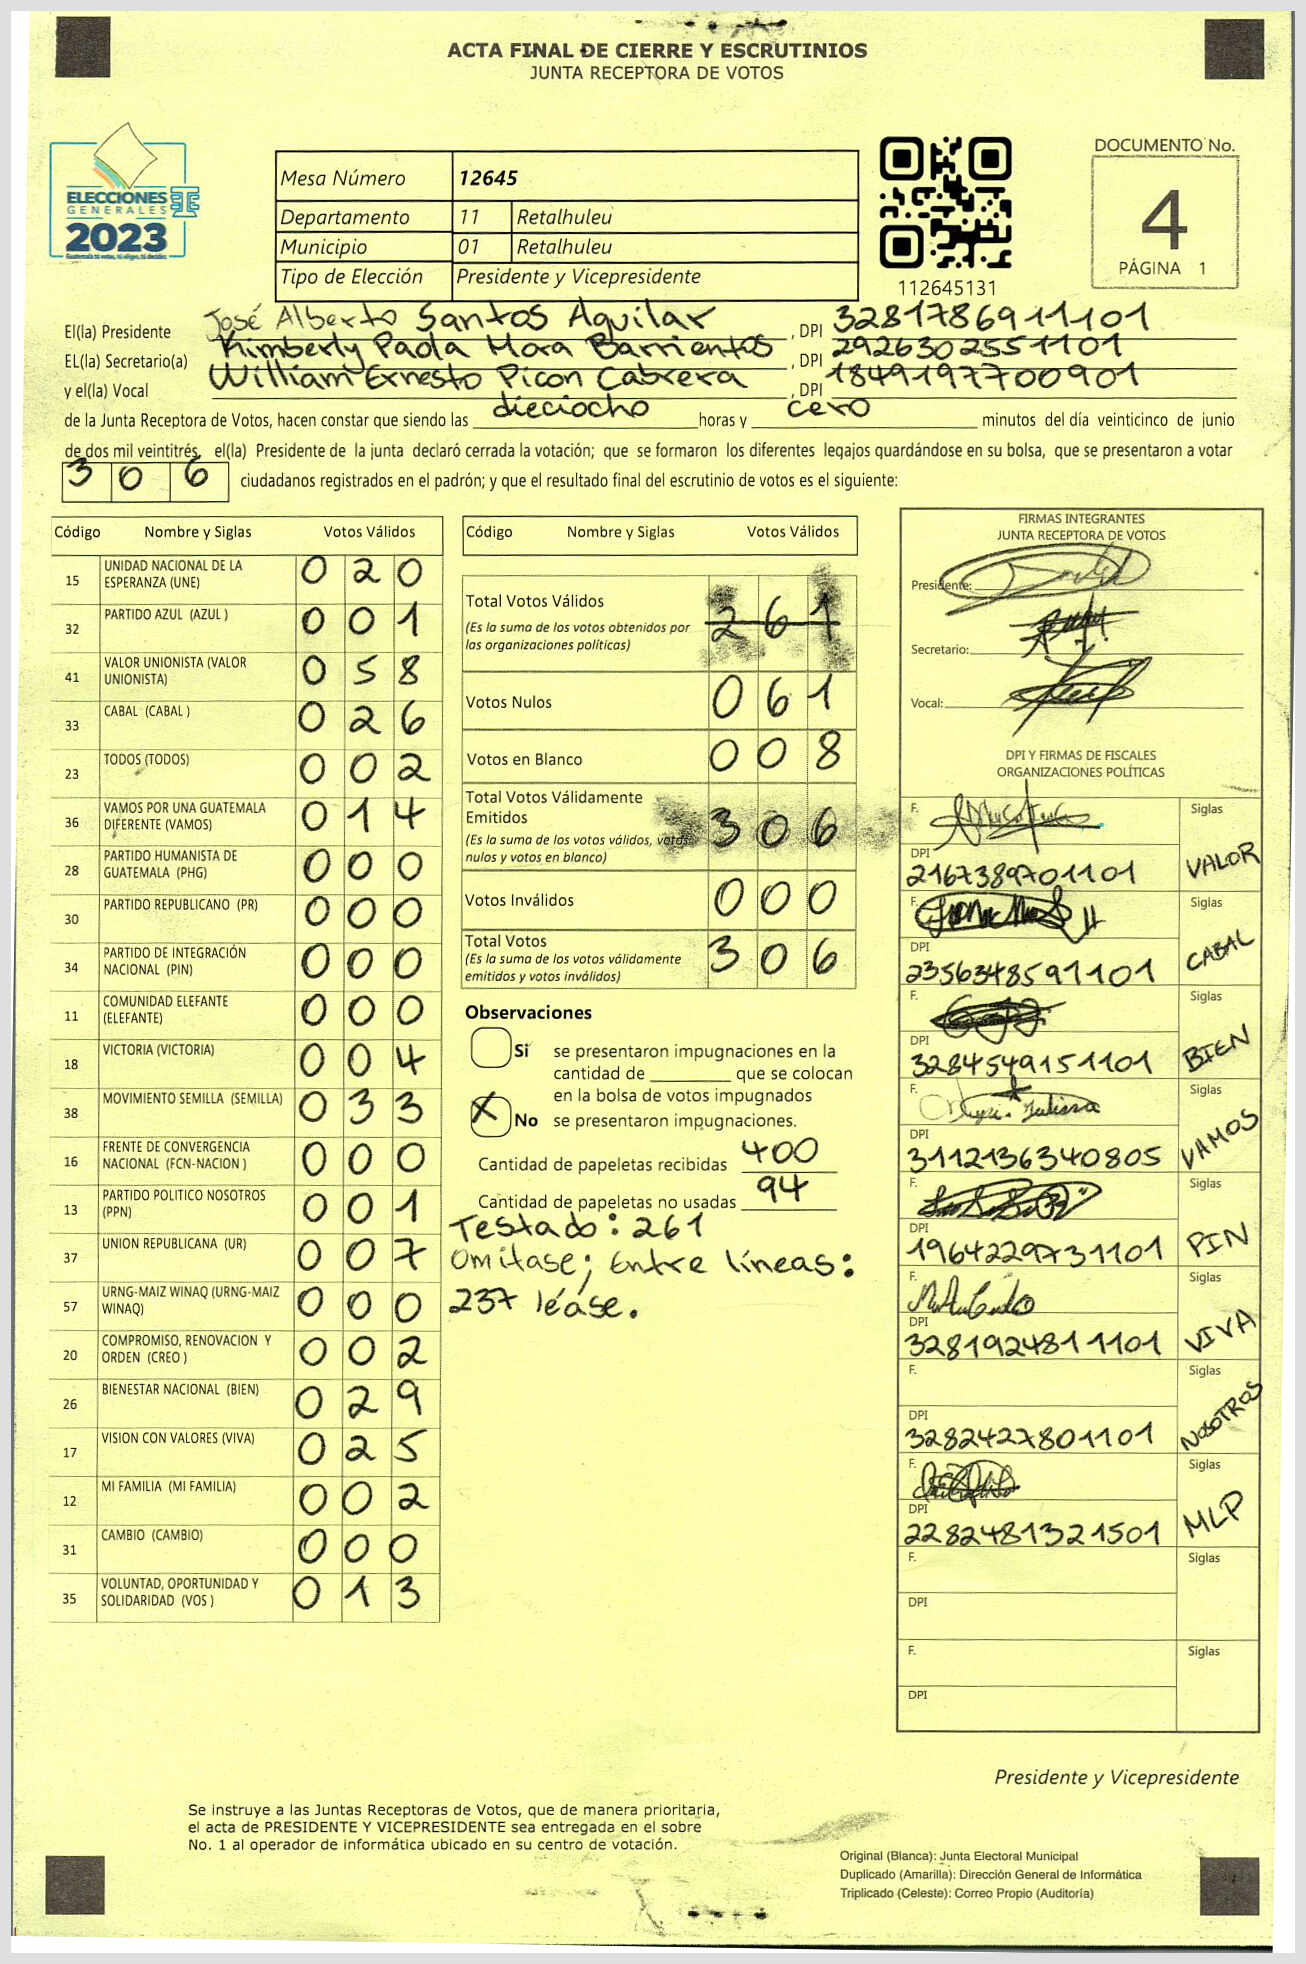 ACTA FINAL DE CIERRE Y ESCRUTINIOS
JUNTA RECEPTORA DE VOTOS
ELECCIONES
GENERALES
2023
Guatemala tú votas, tú eliges, tú decides
Mesa Número 12645
Departamento 11 Retalhuleu
Municipio 01 Retalhuleu
Tipo de Elección Presidente y Vicepresidente
112645131
DOCUMENTO No.
4
PÁGINA 1
El(la) Presidente José Alberto Santos Aguilar, DPI 3281786911101
EL(la) Secretario(a) Kimberly Paola Mora Barrientos, DPI 2926302551101
y el(la) Vocal William Ernesto Picon Cabrera, DPI 1849197700901
de la Junta Receptora de Votos, hacen constar que siendo las dieciocho horas y cero minutos del día veinticinco de junio
de dos mil veintitrés, el(la) Presidente de la junta declaró cerrada la votación; que se formaron los diferentes legajos quardándose en su bolsa, que se presentaron a votar
306 ciudadanos registrados en el padrón; y que el resultado final del escrutinio de votos es el siguiente:
Código Nombre y Siglas Votos Válidos
15 UNIDAD NACIONAL DE LA ESPERANZA (UNE) 020
32 PARTIDO AZUL (AZUL ) 001
41 VALOR UNIONISTA (VALOR UNIONISTA) 058
33 CABAL (CABAL ) 026
23 TODOS (TODOS) 002
36 VAMOS POR UNA GUATEMALA DIFERENTE (VAMOS) 014
28 PARTIDO HUMANISTA DE GUATEMALA (PHG) 000
30 PARTIDO REPUBLICANO (PR) 000
34 PARTIDO DE INTEGRACIÓN NACIONAL (PIN) 000
11 COMUNIDAD ELEFANTE (ELEFANTE) 000
18 VICTORIA (VICTORIA) 004
38 MOVIMIENTO SEMILLA (SEMILLA) 033
16 FRENTE DE CONVERGENCIA NACIONAL (FCN-NACION ) 000
13 PARTIDO POLITICO NOSOTROS (PPN) 001
37 UNION REPUBLICANA (UR) 007
57 URNG-MAIZ WINAQ (URNG-MAIZ WINAQ) 000
20 COMPROMISO, RENOVACION Y ORDEN (CREO ) 002
26 BIENESTAR NACIONAL (BIEN) 029
17 VISION CON VALORES (VIVA) 025
12 MI FAMILIA (MI FAMILIA) 002
31 CAMBIO (CAMBIO) 000
35 VOLUNTAD, OPORTUNIDAD Y SOLIDARIDAD (VOS ) 013
Código Nombre y Siglas Votos Válidos
Total Votos Válidos 261
(Es la suma de los votos obtenidos por
las organizaciones políticas)
Votos Nulos 061
Votos en Blanco 008
Total Votos Válidamente
Emitidos 306
(Es la suma de los votos válidos, votos
nulos y votos en blanco)
Votos Inválidos 000
Total Votos 306
(Es la suma de los votos válidamente
emitidos y votos inválidos)
Observaciones
Si se presentaron impugnaciones en la
cantidad de ________ que se colocan
en la bolsa de votos impugnados
X No se presentaron impugnaciones.
Cantidad de papeletas recibidas 400
Cantidad de papeletas no usadas 94
Testado: 261
Omitase; Entre líneas:
237 léase.
FIRMAS INTEGRANTES
JUNTA RECEPTORA DE VOTOS
Presidente:
Secretario:
Vocal:
DPI Y FIRMAS DE FISCALES
ORGANIZACIONES POLÍTICAS
F. Siglas
DPI 2167389701101 VALOR
F. Siglas
DPI 2356348591101 CABAL
F. Siglas
DPI 3284549151101 BIEN
F. Siglas
DPI 3112136340805 VAMOS
F. Siglas
DPI 1964229731101 PIN
F. Siglas
DPI 3281924811101 VIVA
F. Siglas
DPI 3282427801101 NOSOTROS
F. Siglas
DPI 2282481321501 MLP
F. Siglas
DPI
F. Siglas
DPI
Presidente y Vicepresidente
Se instruye a las Juntas Receptoras de Votos, que de manera prioritaria,
el acta de PRESIDENTE Y VICEPRESIDENTE sea entregada en el sobre
No. 1 al operador de informática ubicado en su centro de votación.
Original (Blanca): Junta Electoral Municipal
Duplicado (Amarilla): Dirección General de Informática
Triplicado (Celeste): Correo Propio (Auditoría)